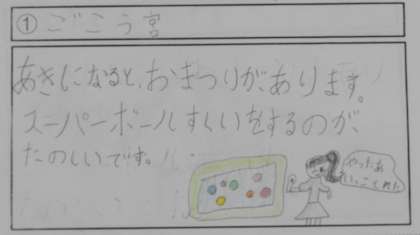 ① ごこう宮
あきになると、おまつりが、あります。
スーパーボールすくいをするのが、
たのしいです。
やったあ
いっことれた